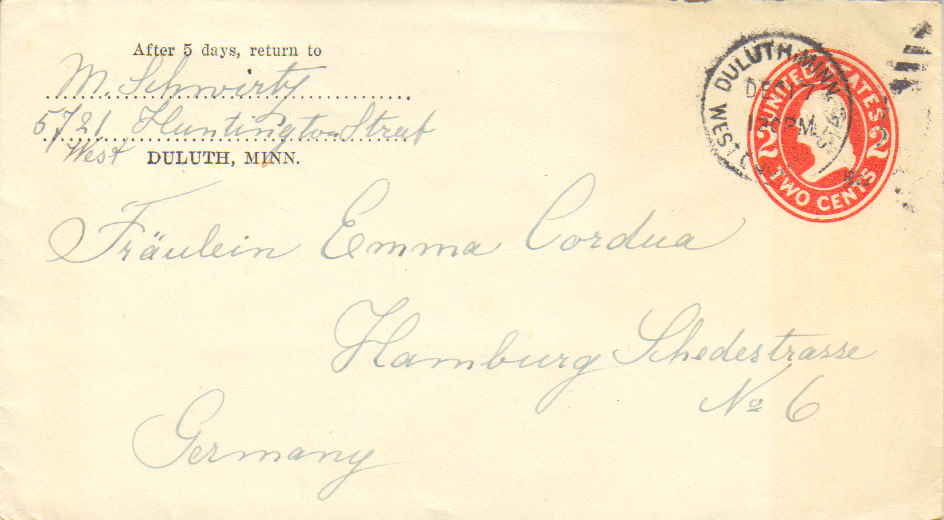 After 5 days, return to
M. Schwirtz
5721 Huntington Street
West DULUTH, MINN.
WEST DULUTH, MINN.
UNITED STATES
2 2
TWO CENTS
Fräulein Emma Cordua
Hamburg Schedestrasse
No 6
Germany